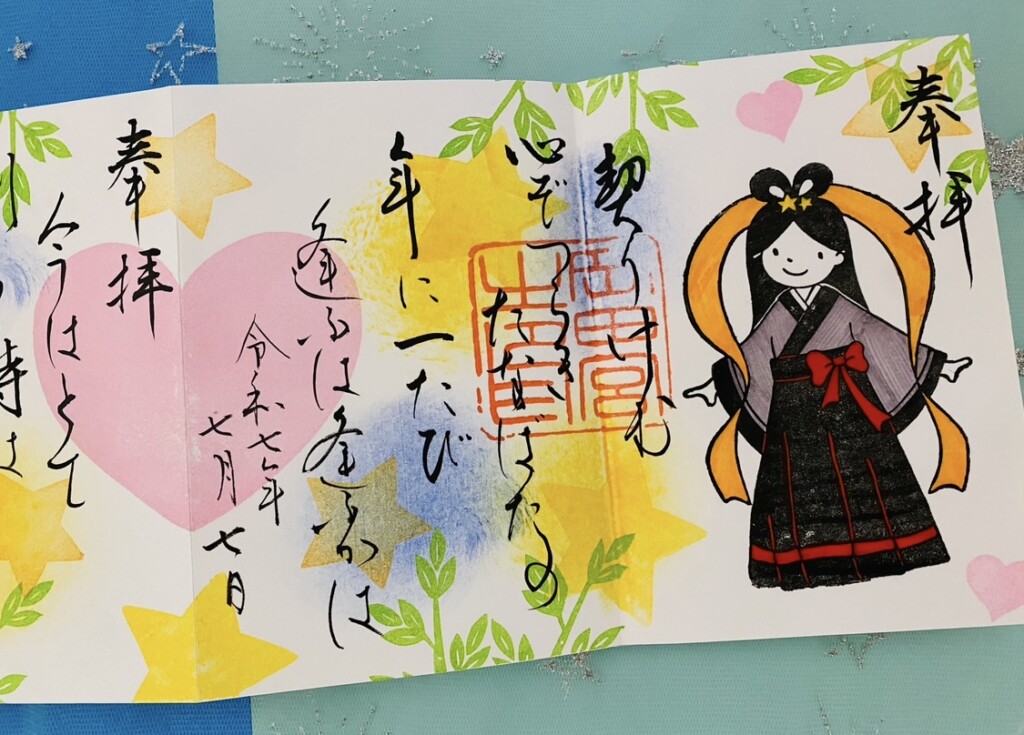 奉拝
契りけむ
心ぞつらき
たなばたの
年に一たび
逢ふは逢ふかは
令和七年
七月七日
奉拝
今はとて
時は